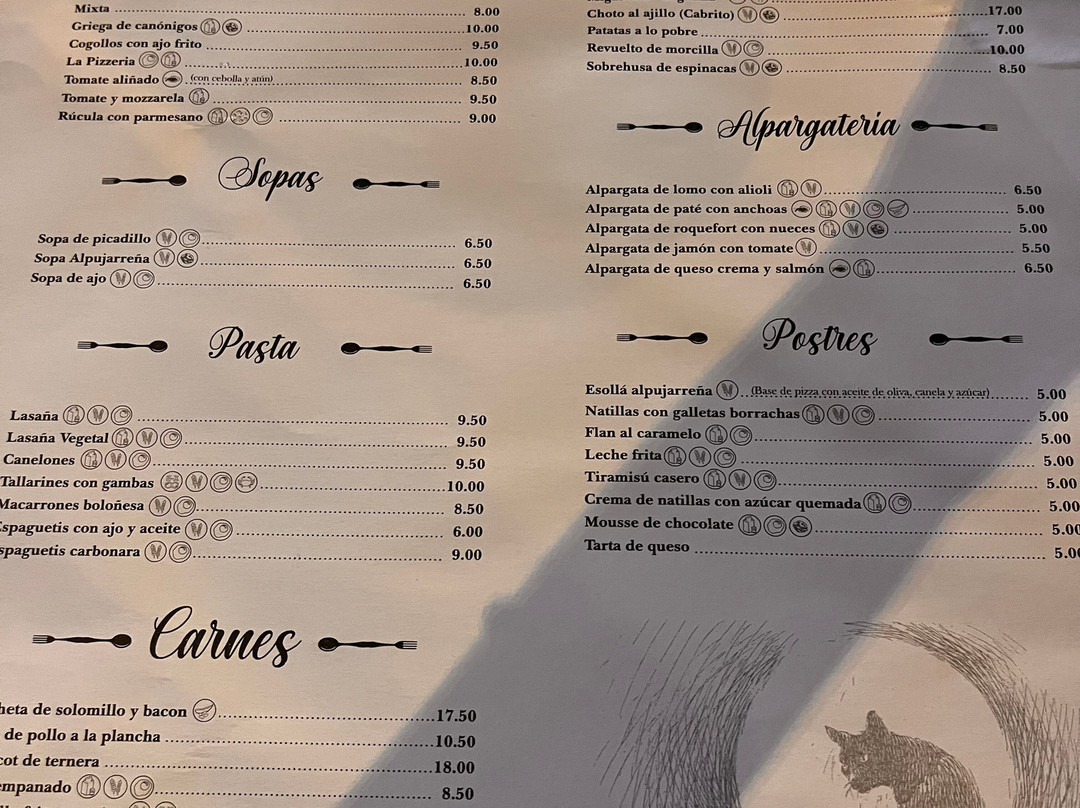 Mixta 8.00
Griega de canónigos 10.00
Cogollos con ajo frito 9.50
La Pizzeria 10.00
Tomate aliñado (con cebolla y atún) 8.50
Tomate y mozzarela 9.50
Rúcula con parmesano 9.00
Sopas
Sopa de picadillo 6.50
Sopa Alpujarreña 6.50
Sopa de ajo 6.50
Pasta
Lasaña 9.50
Lasaña Vegetal 9.50
Canelones 9.50
Tallarines con gambas 10.00
Macarrones boloñesa 8.50
Espaguetis con ajo y aceite 6.00
spaguetis carbonara 9.00
Carnes
heta de solomillo y bacon 17.50
de pollo a la plancha 10.50
cot de ternera 18.00
empanado 8.50
Choto al ajillo (Cabrito) 17.00
Patatas a lo pobre 7.00
Revuelto de morcilla 10.00
Sobrehusa de espinacas 8.50
Alpargateria
Alpargata de lomo con alioli 6.50
Alpargata de paté con anchoas 5.00
Alpargata de roquefort con nueces 5.00
Alpargata de jamón con tomate 5.50
Alpargata de queso crema y salmón 6.50
Postres
Esollá alpujarreña (Base de pizza con aceite de oliva, canela y azúcar) 5.00
Natillas con galletas borrachas 5.00
Flan al caramelo 5.00
Leche frita 5.00
Tiramisú casero 5.00
Crema de natillas con azúcar quemada 5.00
Mousse de chocolate 5.00
Tarta de queso 5.00